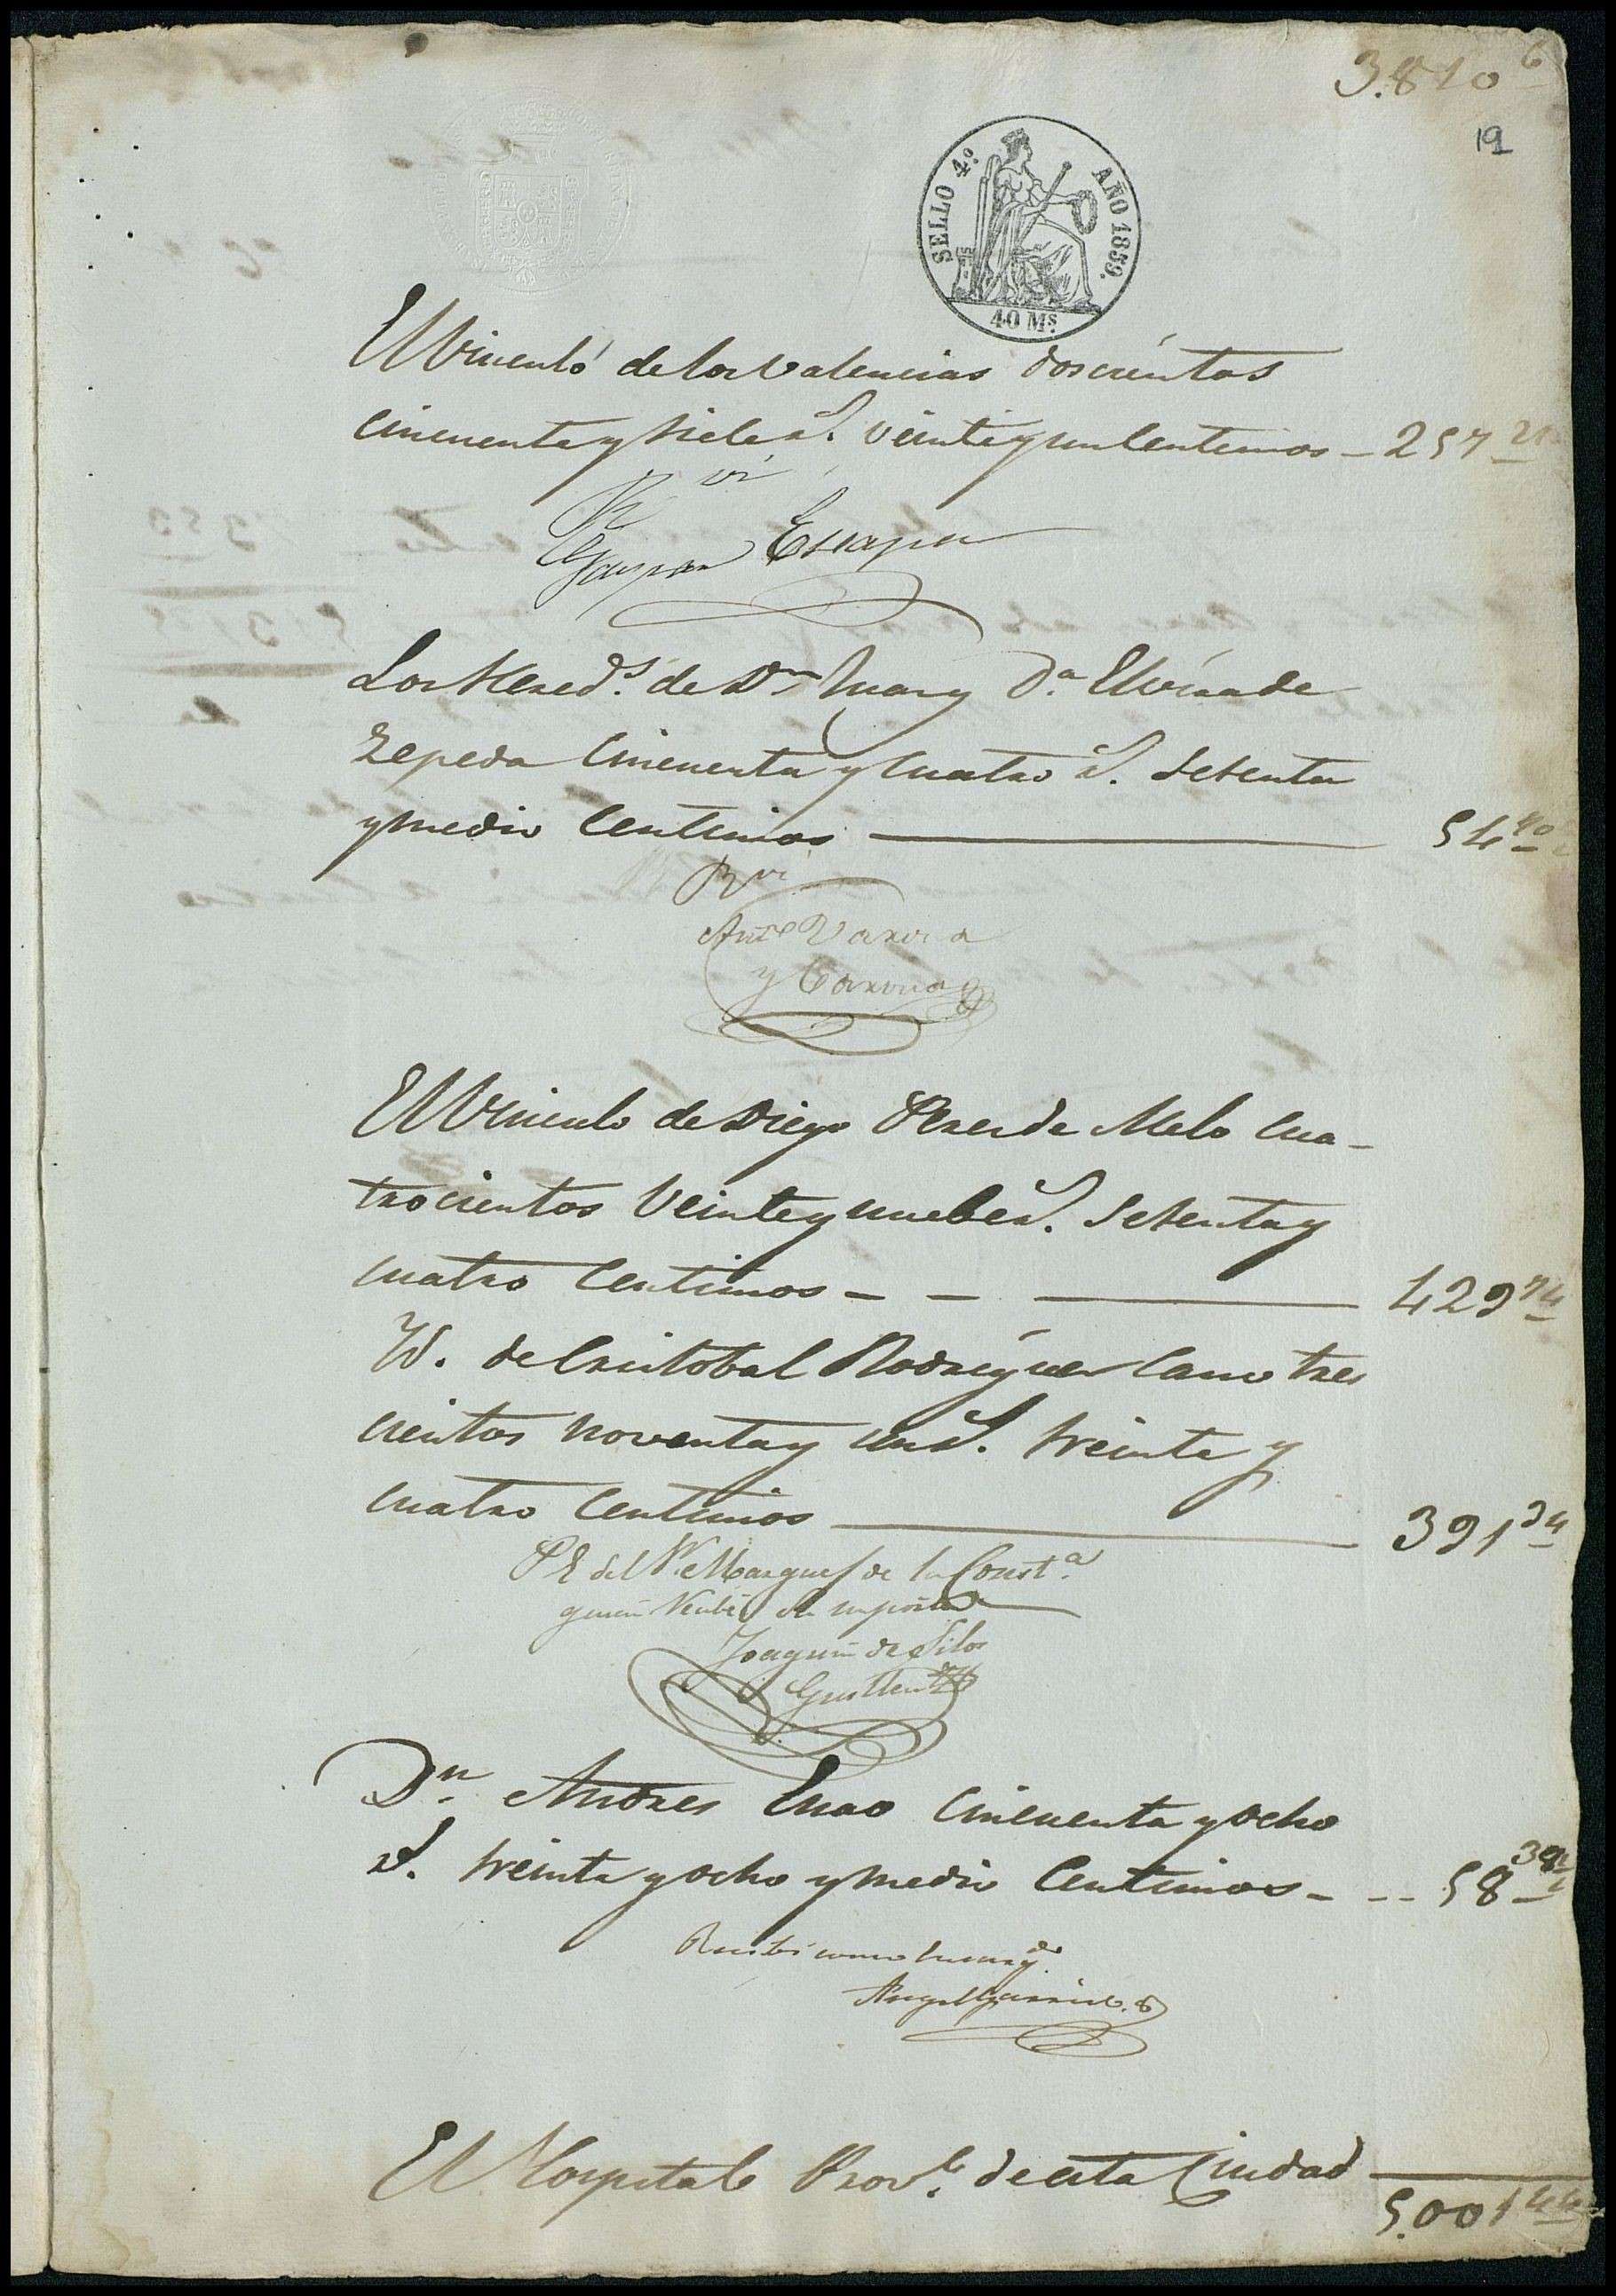 3.810 6
19
SELLO 4º. AÑO 1859.
40 Ms.
El Vinculo de los Valencias doscientos
cincuenta y siete rs. veinte y un Centimos - 257 21
Rvi
Gaspar Escapa
Los Hered.s de Dn Juan y Da. Elvira de
Zepeda Cincuenta y cuatro rs. setenta
y medio Centimos 54 70
Rvi
Anto Varona
y Varona
El Vinculo de Diego Perez de Melo cua-
trocientos Veinte y nuebe rs. setenta y
cuatro Centimos - - 429 74
Yd. de Cristobal Rodriguez Cano tres
cientos noventa y un rs. treinta y
cuatro Centimos 391 34
P E del Sr. Marques de la Const.a
quien Recibi su importe
Joaquin de Silos
Dn. Andres Enao Cincuenta y ocho
rs. treinta y ocho y medio Centimos - - - 58 38 1/2
Recibi como encargdo.
Angel Garrido
El Hospital Provl. de esta Ciudad
5.001 44